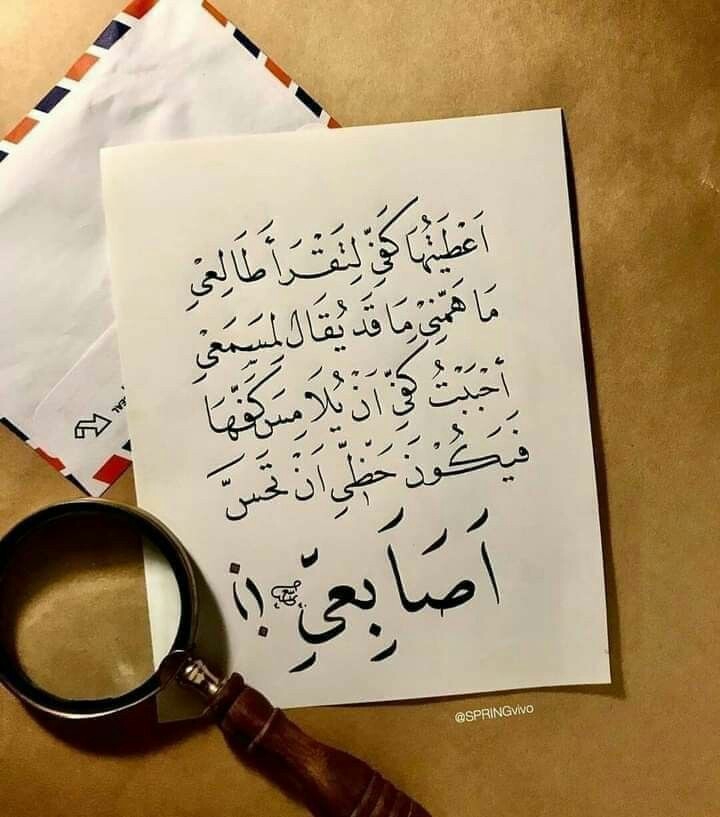 اَعْطَيْتُهَا كَفِّيْ لِتَقْرَأَ طَالِعِيْ
مَا هَمَّنِيْ مَا قَد يُقَالُ لِمَسْمَعِيْ
أَحْبَبْتُ كَفِّيْ اَنْ يُلَامِسَ كَفَّهَا
فَيَكُوْنَ حَظِّيْ اَنْ تَحَسَّ
اَصَابِعِيْ
@SPRINGvivo